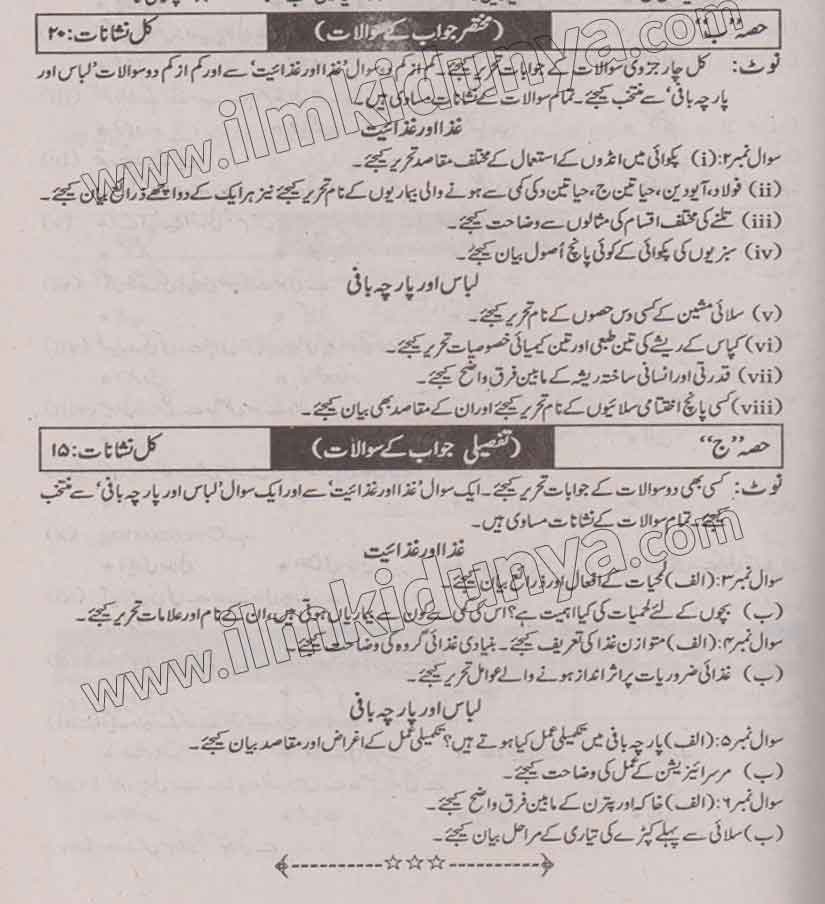 حصہ ”ب“ (مختصر جواب کے سوالات) کل نشانات: ۲۰
نوٹ: کل چار جزوی سوالات کے جوابات تحریر کیجئے۔ کم از کم دو سوال ’غذا اور غذائیت‘ سے اور کم از کم دو سوالات ’لباس اور
پارچہ بافی‘ سے منتخب کیجئے۔ تمام سوالات کے نشانات مساوی ہیں۔
غذا اور غذائیت
سوال نمبر ۲: (i) پکوائی میں انڈوں کے استعمال کے مختلف مقاصد تحریر کیجئے۔
(ii) فولاد، آیوڈین، حیاتین ج، حیاتین د کی کمی سے ہونے والی بیماریوں کے نام تحریر کیجئے نیز ہر ایک کے دو اچھے ذرائع بیان کیجئے۔
(iii) تلنے کی مختلف اقسام کی مثالوں سے وضاحت کیجئے۔
(iv) سبزیوں کی پکوائی کے کوئی پانچ اُصول بیان کیجئے۔
لباس اور پارچہ بافی
(v) سلائی مشین کے کسی دس حصوں کے نام تحریر کیجئے۔
(vi) کپاس کے ریشے کی تین طبعی اور تین کیمیائی خصوصیات تحریر کیجئے۔
(vii) قدرتی اور انسانی ساختہ ریشہ کے مابین فرق واضح کیجئے۔
(viii) کسی پانچ اختتامی سلائیوں کے نام تحریر کیجئے اور ان کے مقاصد بھی بیان کیجئے۔
حصہ ”ج“ (تفصیلی جواب کے سوالات) کل نشانات: ۱۵
نوٹ: کسی بھی دو سوالات کے جوابات تحریر کیجئے۔ ایک سوال ’غذا اور غذائیت‘ سے اور ایک سوال ’لباس اور پارچہ بافی‘ سے منتخب
کیجئے۔ تمام سوالات کے نشانات مساوی ہیں۔
غذا اور غذائیت
سوال نمبر ۳: (الف) لحمیات کے افعال اور ذرائع بیان کیجئے۔
(ب) بچوں کے لئے لحمیات کی کیا اہمیت ہے؟ اس کی کمی سے کون سے بیماریاں ہوتی ہیں، ان کے نام اور علامات تحریر کیجئے۔
سوال نمبر ۴: (الف) متوازن غذا کی تعریف کیجئے۔ بنیادی غذائی گروہ کی وضاحت کیجئے۔
(ب) غذائی ضروریات پر اثر انداز ہونے والے عوامل تحریر کیجئے۔
لباس اور پارچہ بافی
سوال نمبر ۵: (الف) پارچہ بافی میں تکمیلی عمل کیا ہوتے ہیں؟ تکمیلی عمل کے اغراض اور مقاصد بیان کیجئے۔
(ب) مرسرائیزیشن کے عمل کی وضاحت کیجئے۔
سوال نمبر ۶: (الف) خاکہ اور پترن کے مابین فرق واضح کیجئے۔
(ب) سلائی سے پہلے کپڑے کی تیاری کے مراحل بیان کیجئے۔
www.ilmkidunya.com
www.ilmkidunya.com